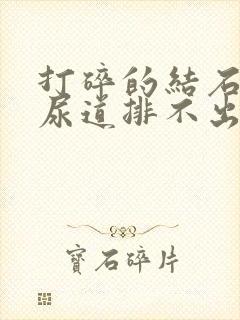 打碎的結石
尿道排不出
寶石碎片